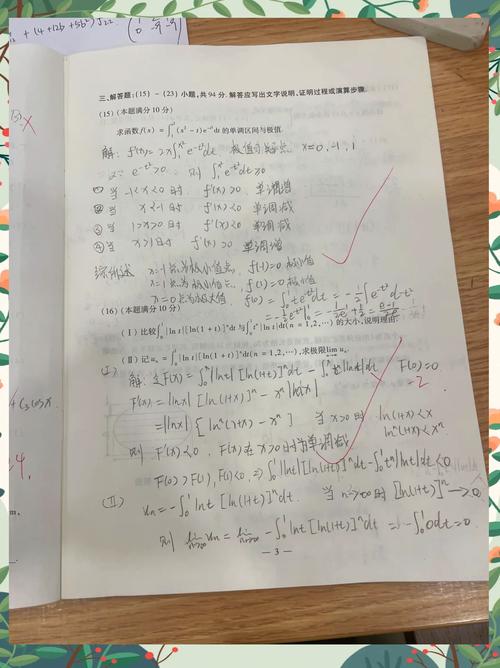 ² + (4+12b+5b²)J₂₂.
三、解答题:(15)-(23)小题,共94分.解答应写出文字说明、证明过程或演算步骤.
(15)(本题满分10分)
求函数f(x)=∫₁^{x²}(x²-t)e^{-t²}dt的单调区间与极值.
解: f'(x)=2x∫₁^{x²}e^{-t²}dt 极值可疑点 x=0,-1,1
∵ e^{-t²}>0. 则 ∫₁^{x²}e^{-t²}dt
① 当 -1<x<0时. f'(x)>0. 单调增
② 当 x<-1时 f'(x)<0 单调减
③ 当 1>x>0时 f'(x)<0 单调减
④ 当 x>1时 f'(x)>0 单调增
综上所述 x=-1点为极小值点, f(-1)=0 极小值
x=1点为极小值点, f(1)=0 极小值
x=0点为极大值, f(0)=∫₀¹te^{-t²}dt=-½∫e^{-t²}d-t²
=-½e^{-t²}|₀¹=-1/2e+½=
(16)(本题满分10分)
(Ⅰ)比较∫₀¹|ln t|[ln(1+t)]ⁿdt与∫₀¹tⁿ|ln t|dt(n=1,2,…)的大小,说明理由;
(Ⅱ)记uₙ=∫₀¹|ln t|[ln(1+t)]ⁿdt(n=1,2,…),求极限lim uₙ.
(Ⅰ) 解: 令F(x)=∫₀ˣ|lnt|[ln(1+t)]ⁿdt-∫₀ˣtⁿ|lnt|dt F(0)=0
F'(x)=|lnx|[ln(1+x)]ⁿ-xⁿ|lnx|
=|lnx|{lnⁿ(1+x)-xⁿ} 当x>0时 ln(1+x)<x
lnⁿ(1+x)<xⁿ
则 F'(x)<0, F(x)在x>0时为单调减
F(0)>F(1), F(1)<0, ⇒∫₀¹|lnt|[ln(1+t)]ⁿdt-∫₀¹tⁿ|lnt|dt<0
(Ⅱ) uₙ=-∫₀¹lnt[ln(1+t)]ⁿdt. 当n→∞时 [ln(1+t)]ⁿ→0.
则 lim uₙ=lim -∫₀¹lnt[ln(1+t)]ⁿdt ⇒-∫₀¹0dt=0.
— 3 —